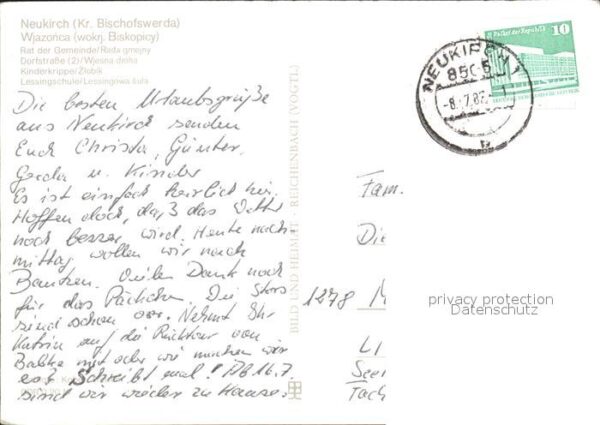 Neukirch (Kr. Bischofswerda)
Wjazońca (wokrj. Biskopicy)
Rat der Gemeinde/Rada gmejny
Dorfstraße (2)/Wjesna dróha
Kinderkrippe/Žłobik
Lessingschule/Lessingowa šula
Die besten Urlaubsgrüße
aus Neukirch senden
Euch Christa, Günter,
Gerda u. Kinder
Es ist einfach herrlich hier.
Hoffen doch, daß das Wetter
noch besser wird. Heute nach-
mittag wollen wir nach
Bautzen. Vielen Dank noch
für das Päckchen. Die
sind schon Nehmt Ihr
Katrin auf die von
mit oder wie machen wir
es? Schreibt mal! Ab 16.7.
sind wir wieder zu Hause.
BILD UND HEIMAT · REICHENBACH (VOGTL)
Palast der Republik
10
NEUKIRCH 1
8505
-8.-7.87
b
Fam.
Die
1278 M
privacy protection
Datenschutz
LI
See
Tach